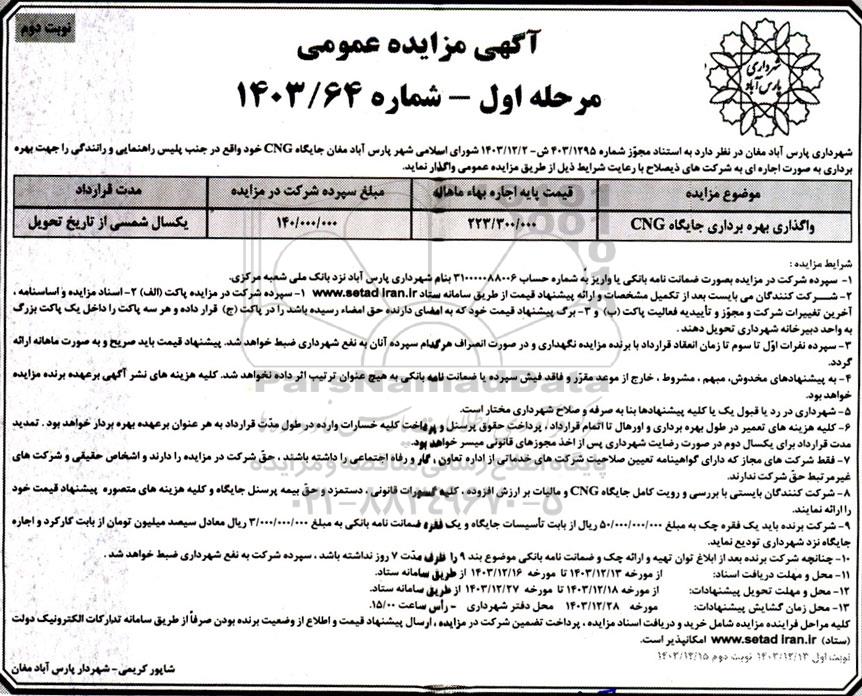 نوبت دوم
شهرداری پارس آباد
آگهی مزایده عمومی
مرحله اول - شماره ۱۴۰۳/۶۴
شهرداری پارس آباد مغان در نظر دارد به استناد مجوز شماره ۴۰۳/۱۲۹۵ ش- ۱۴۰۳/۱۲/۲ شورای اسلامی شهر پارس آباد مغان جایگاه CNG خود واقع در جنب پلیس راهنمایی و رانندگی را جهت بهره
برداری به صورت اجاره ای به شرکت های ذیصلاح با رعایت شرایط ذیل از طریق مزایده عمومی واگذار نماید.
موضوع مزایده قیمت پایه اجاره بهاء ماهانه مبلغ سپرده شرکت در مزایده مدت قرارداد
واگذاری بهره برداری جایگاه CNG ۲۲۳/۳۰۰/۰۰۰ ۱۴۰/۰۰۰/۰۰۰ یکسال شمسی از تاریخ تحویل
شرایط مزایده :
۱- سپرده شرکت در مزایده بصورت ضمانت نامه بانکی یا واریز به شماره حساب ۳۱۰۰۰۰۰۸۸۰۰۶ بنام شهرداری پارس آباد نزد بانک ملی شعبه مرکزی.
۲- شرکت کنندگان می بایست بعد از تکمیل مشخصات و ارائه پیشنهاد قیمت از طریق سامانه ستاد www.setad iran.ir ۱- سپرده شرکت در مزایده پاکت (الف) ۲- اسناد مزایده و اساسنامه ،
آخرین تغییرات شرکت و مجوز و تأییدیه فعالیت پاکت (ب) و ۳- برگ پیشنهاد قیمت خود که به امضای دارنده حق امضاء رسیده باشد را در پاکت (ج) قرار داده و هر سه پاکت را داخل یک پاکت بزرگ
به واحد دبیرخانه شهرداری تحویل دهند .
۳- سپرده نفرات اول تا سوم تا زمان انعقاد قرارداد با برنده مزایده نگهداری و در صورت انصراف هرکدام سپرده آنان به نفع شهرداری ضبط خواهد شد. پیشنهاد قیمت باید صریح و به صورت ماهانه ارائه
گردد.
۴- به پیشنهادهای مخدوش، مبهم ، مشروط ، خارج از موعد مقرر و فاقد فیش سپرده یا ضمانت نامه بانکی به هیچ عنوان ترتیب اثر داده نخواهد شد. کلیه هزینه های نشر آگهی برعهده برنده مزایده
خواهد بود.
۵- شهرداری در رد یا قبول یک یا کلیه پیشنهادها بنا به صرفه و صلاح شهرداری مختار است.
۶- کلیه هزینه های تعمیر در طول بهره برداری و اورهال تا اتمام قرارداد ، پرداخت حقوق پرسنل و پرداخت کلیه خسارات وارده در طول مدت قرارداد به هر عنوان برعهده بهره بردار خواهد بود . تمدید
مدت قرارداد برای یکسال دوم در صورت رضایت شهرداری پس از اخذ مجوزهای قانونی میسر خواهد بود.
۷- فقط شرکت های مجاز که دارای گواهینامه تعیین صلاحیت شرکت های خدماتی از اداره تعاون ، کار و رفاه اجتماعی را داشته باشند ، حق شرکت در مزایده را دارند و اشخاص حقیقی و شرکت های
غیرمرتبط حق شرکت ندارند.
۸- شرکت کنندگان بایستی با بررسی و رویت کامل جایگاه CNG و مالیات بر ارزش افزوده ، کلیه کسورات قانونی ، دستمزد و حق بیمه پرسنل جایگاه و کلیه هزینه های متصوره پیشنهاد قیمت خود
را ارائه نمایند.
۹- شرکت برنده باید یک فقره چک به مبلغ ۵۰/۰۰۰/۰۰۰/۰۰۰ ریال از بابت تأسیسات جایگاه و یک فقره ضمانت نامه بانکی به مبلغ ۳/۰۰۰/۰۰۰/۰۰۰ ریال معادل سیصد میلیون تومان از بابت کارکرد و اجاره
جایگاه نزد شهرداری تودیع نماید.
۱۰- چنانچه شرکت برنده بعد از ابلاغ توان تهیه و ارائه چک و ضمانت نامه بانکی موضوع بند ۹ را ظرف مدت ۷ روز نداشته باشد ، سپرده شرکت به نفع شهرداری ضبط خواهد شد .
۱۱- محل و مهلت دریافت اسناد: از مورخه ۱۴۰۳/۱۲/۱۳ تا مورخه ۱۴۰۳/۱۲/۱۶ از طریق سامانه ستاد.
۱۲- محل و مهلت تحویل پیشنهادات: از مورخه ۱۴۰۳/۱۲/۱۸ تا مورخه ۱۴۰۳/۱۲/۲۷ از طریق سامانه ستاد.
۱۳- محل زمان گشایش پیشنهادات: مورخه ۱۴۰۳/۱۲/۲۸ محل دفتر شهرداری - رأس ساعت ۱۵/۰۰
کلیه مراحل فرایند مزایده شامل خرید و دریافت اسناد مزایده ، پرداخت تضمین شرکت در مزایده ، ارسال پیشنهاد قیمت و اطلاع از وضعیت برنده بودن صرفاً از طریق سامانه تدارکات الکترونیک دولت
(ستاد) www.setad iran.ir امکانپذیر است.
نوبت اول ۱۴۰۳/۱۲/۱۳ نوبت دوم ۱۴۰۳/۱۲/۱۵
شاپور کریمی - شهردار پارس آباد مغان
ParsNamadData
۰۲۱-۸۸۳۴۹۶۷۰-۵